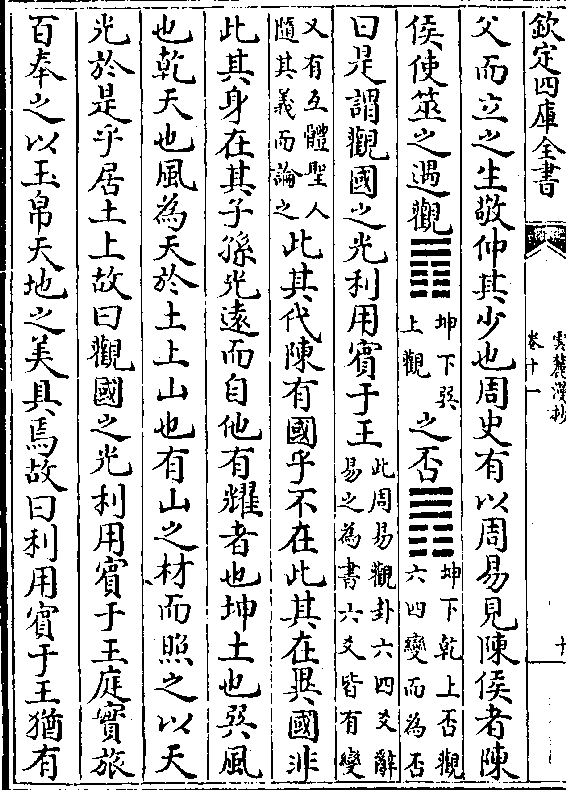 欽定四庫全書
雲麓漫抄
卷十一
父而立之生敬仲其少也周史有以周易見陳侯者陳
侯使筮之遇觀䷓坤下巽上觀之否䷋坤下乾上否觀六四變而為否
曰是謂觀國之光利用賓于王此周易觀卦六四爻辭易之為書六爻皆有變
又有互體聖人隨其義而論之此其代陳有國乎不在此其在異國非
此其身在其子孫光遠而自他有耀者也坤土也巽風
也乾天也風為天於土上山也有山之材而照之以天
光於是乎居土上故曰觀國之光利用賓于王庭實旅
百奉之以玉帛天地之美具焉故曰利用賓于王猶有